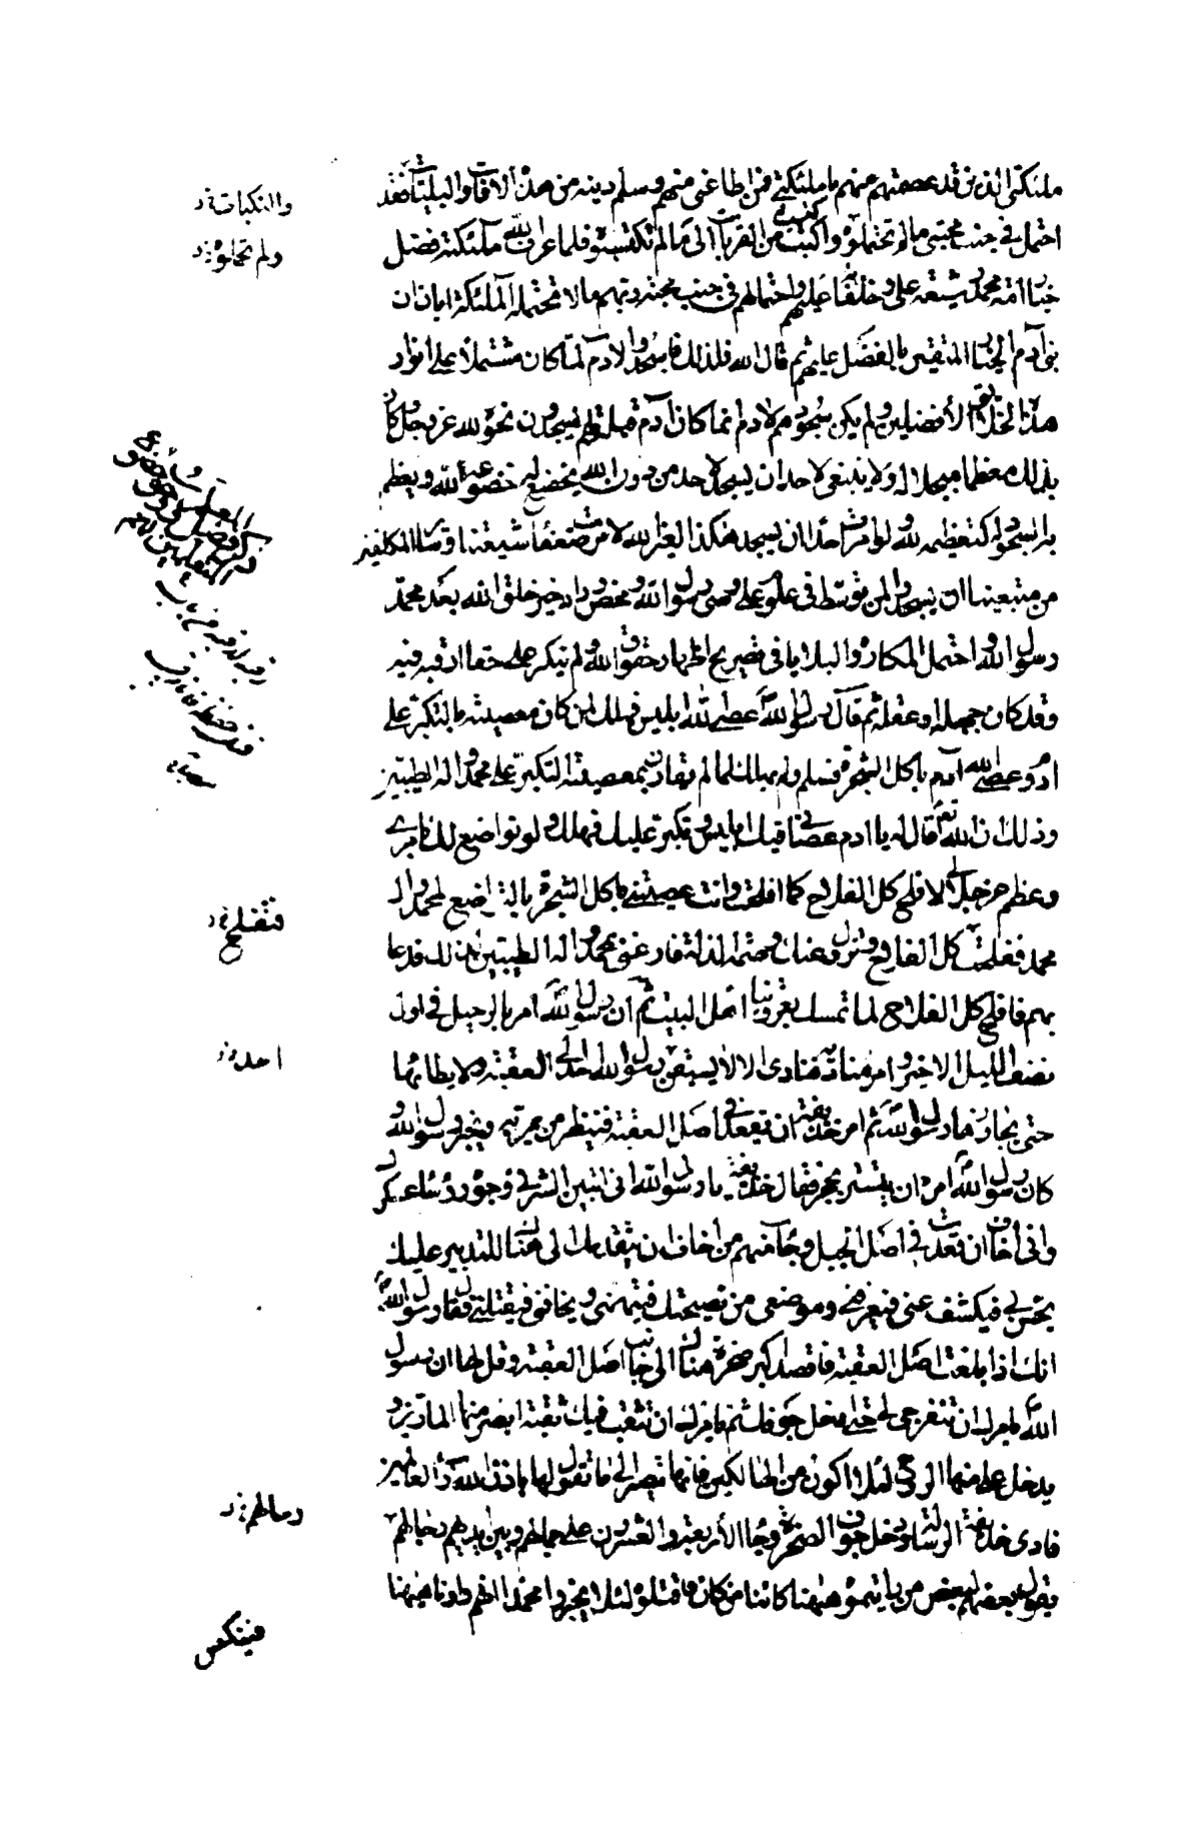 ملئكتى الذين قد عصمتهم منهم يا ملئكتى فمن اطاعنى منهم وسلم دينه من هذه الافات والبليات فقد
والنكبات
احتمل فى جنب محبتى ما لم تحتملوه واكتسب من القربات الى ما لم تكتسبوه فلما عرف الله ملئكته فضل
ولم تحملوه
خيار امة محمد وشيعة على وخلفائه عليهم واحتمالهم فى جنب محبة ربهم ما لا تحتمله الملئكة ابان ان
بنى آدم الخيار المتقين بالفضل عليهم ثم قال الله فلذلك فاسجدوا لادم لما كان مشتملا على انوار
هذه الخلايق الافضلين ولم يكن سجودهم لادم انما كان آدم قبلة لهم يسجدون نحوه لله عز وجل وكان
بذلك معظما مبجلا له ولا ينبغى لاحد ان يسجد لاحد من دون الله يخضع له خضوعه لله ويعظم
بالسجود له كتعظيمه لله ولو امرت احدا ان يسجد هكذا لغير الله لامرت ضعفاء شيعتنا وساير المكلفين
من متبعينا ان يسجدوا لمن توسط فى علوم على وصى رسول الله ومحض وداد خير خلق الله بعد محمد
رسول الله واحتمل المكاره والبلايا فى تصريح اظهار حقوق الله ولم ينكر على حقا ارقبه فيه
وقد كان جهله او عقله ثم قال رسول الله عصى الله ابليس فهلك لمن كان معصيته بالتكبر على
ادم وعصى الله آدم باكل الشجرة فسلم ولم يهلك لما لم يقارن بمعصيته التكبر على محمد واله الطيبين
وذلك ان الله تعالى قال له يا ادم عصانى فيك ابليس وتكبر عليك فهلك ولو تواضع لك بامرى
وعظم عز جلالى لافلح كل الفلاح كما افلحت وانت عصيتنى باكل الشجرة بالتواضع لمحمد وال
فتفلح
محمد فتفلح كل الفلاح وتزول عنك وصمة الذلة فادعنى بمحمد واله الطيبين لذلك فدعا
بهم فافلح كل الفلاح لما تمسك بعروتنا اهل البيت ثم ان رسول الله امر بالرحيل فى اول
نصف الليل الاخير وامر مناديه فنادى الا لا يسبقن رسول الله احد الى العقبة ولا يطاها
احد
حتى يجاوزها رسول الله ثم امر حذيفة ان يقعد فى اصل العقبة فينظر من يمر به ويخبر رسول الله و
كان رسول الله امره ان يتستر بحجر فقال حذيفة يا رسول الله انى اتبين الشر فى وجوه رؤساء عسكرك
وانى اخاف ان قعدت فى اصل الجبل وجاء منهم من اخاف ان يتقدمك الى هناك للتدبير عليك
يحس بى فيكشف عنى فيعرفنى وموضعى من نصيحتك فيتهمنى ويخافنى فيقتلنى فقال رسول الله
انك اذا بلغت اصل العقبة فاقصد اكبر صخرة هناك الى جانب اصل العقبة وقل لها ان رسول
الله يامرك ان تنفرجى لى حتى ادخل جوفك ثم يامرك ان تثقب فيك ثقبة ابصر منها المارين و
يدخل على منها الروح لئلا اكون من الهالكين فانها تصير الى ما تقول لها باذن الله رب العالمين
فادى حذيفة الرسالة ودخل جوف الصخرة وجاء الاربعة والعشرون على جمالهم وبين ايديهم رجالهم
رجالهم
يقول بعضهم لبعض من رايتموه هيهنا كائنا من كان فاقتلوه لئلا يخبروا محمدا انهم راونا هيهنا
فينكص